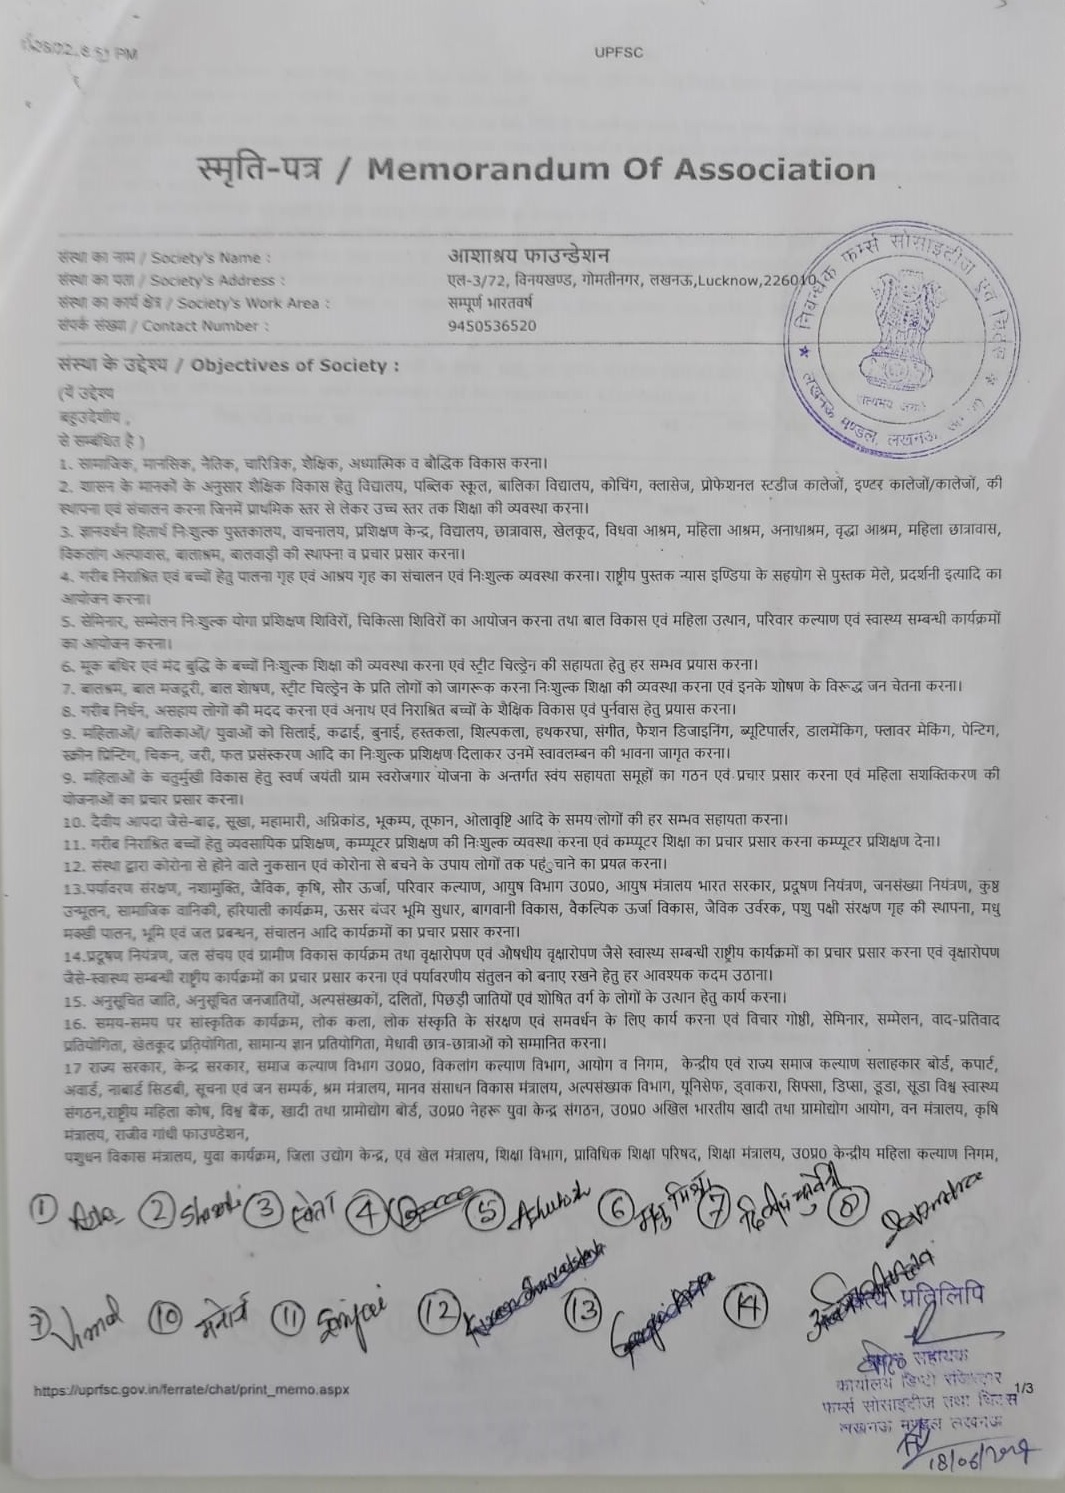 UPFSC
स्मृति-पत्र / Memorandum Of Association
संस्था का नाम / Society's Name : आशाश्रय फाउन्डेशन
संस्था का पता / Society's Address : एल-3/72, विनयखण्ड, गोमतीनगर, लखनऊ,Lucknow,226010
संस्था का कार्य क्षेत्र / Society's Work Area : सम्पूर्ण भारतवर्ष
संपर्क संख्या / Contact Number : 9450536520
संस्था के उद्देश्य / Objectives of Society :
(ये उद्देश्य
बहुउदेशीय ,
से सम्बंधित है )
1. सामाजिक, मानसिक, नैतिक, चारित्रिक, शैक्षिक, अध्यात्मिक व बौद्धिक विकास करना।
2. शासन के मानकों के अनुसार शैक्षिक विकास हेतु विद्यालय, पब्लिक स्कूल, बालिका विद्यालय, कोचिंग, क्लासेज, प्रोफेशनल स्टडीज कालेजों, इण्टर कालेजों/कालेजों, की
स्थापना एवं संचालन करना जिनमें प्राथमिक स्तर से लेकर उच्च स्तर तक शिक्षा की व्यवस्था करना।
3. ज्ञानवर्धन हितार्थ निःशुल्क पुस्तकालय, वाचनालय, प्रशिक्षण केन्द्र, विद्यालय, छात्रावास, खेलकूद, विधवा आश्रम, महिला आश्रम, अनाथाश्रम, वृद्धा आश्रम, महिला छात्रावास,
विकलांग अल्पावास, बालाश्रम, बालवाड़ी की स्थापना व प्रचार प्रसार करना।
4. गरीब निराश्रित एवं बच्चों हेतु पालना गृह एवं आश्रय गृह का संचालन एवं निःशुल्क व्यवस्था करना। राष्ट्रीय पुस्तक न्यास इण्डिया के सहयोग से पुस्तक मेले, प्रदर्शनी इत्यादि का
आयोजन करना।
5. सेमिनार, सम्मेलन निःशुल्क योगा प्रशिक्षण शिविरों, चिकित्सा शिविरों का आयोजन करना तथा बाल विकास एवं महिला उत्थान, परिवार कल्याण एवं स्वास्थ्य सम्बन्धी कार्यक्रमों
का आयोजन करना।
6. मूक बधिर एवं मंद बुद्धि के बच्चों निःशुल्क शिक्षा की व्यवस्था करना एवं स्ट्रीट चिल्ड्रेन की सहायता हेतु हर सम्भव प्रयास करना।
7. बालश्रम, बाल मजदूरी, बाल शोषण, स्ट्रीट चिल्ड्रेन के प्रति लोगों को जागरूक करना निःशुल्क शिक्षा की व्यवस्था करना एवं इनके शोषण के विरूद्ध जन चेतना करना।
8. गरीब निर्धन, असहाय लोगों की मदद करना एवं अनाथ एवं निराश्रित बच्चों के शैक्षिक विकास एवं पुर्नवास हेतु प्रयास करना।
9. महिलाओं/ बालिकाओं/ युवाओं को सिलाई, कढाई, बुनाई, हस्तकला, शिल्पकला, हथकरघा, संगीत, फैशन डिजाइनिंग, ब्यूटिपार्लर, डालमेंकिग, फ्लावर मेकिंग, पेन्टिग,
स्क्रीन प्रिन्टिंग, चिकन, जरी, फल प्रसंस्करण आदि का निःशुल्क प्रशिक्षण दिलाकर उनमें स्वावलम्बन की भावना जागृत करना।
9. महिलाओं के चतुर्मुखी विकास हेतु स्वर्ण जयंती ग्राम स्वरोजगार योजना के अन्तर्गत स्वंय सहायता समूहों का गठन एवं प्रचार प्रसार करना एवं महिला सशक्तिकरण की
योजनाओं का प्रचार प्रसार करना।
10. दैवीय आपदा जैसे-बाढ़, सूखा, महामारी, अग्निकांड, भूकम्प, तूफान, ओलावृष्टि आदि के समय लोगों की हर सम्भव सहायता करना।
11. गरीब निराश्रित बच्चों हेतु व्यवसायिक प्रशिक्षण, कम्प्यूटर प्रशिक्षण की निःशुल्क व्यवस्था करना एवं कम्प्यूटर शिक्षा का प्रचार प्रसार करना कम्प्यूटर प्रशिक्षण देना।
12. संस्था द्वारा कोरोना से होने वाले नुकसान एवं कोरोना से बचने के उपाय लोगों तक पहंुचाने का प्रयत्न करना।
13.पर्यावरण संरक्षण, नशामुक्ति, जैविक, कृषि, सौर ऊर्जा, परिवार कल्याण, आयुष विभाग उ0प्र0, आयुष मंत्रालय भारत सरकार, प्रदूषण नियंत्रण, जनसंख्या नियंत्रण, कुष्ठ
उन्मूलन, सामाजिक वानिकी, हरियाली कार्यक्रम, ऊसर बंजर भूमि सुधार, बागवानी विकास, वैकल्पिक ऊर्जा विकास, जैविक उर्वरक, पशु पक्षी संरक्षण गृह की स्थापना, मधु
मक्खी पालन, भूमि एवं जल प्रबन्धन, संचालन आदि कार्यक्रमों का प्रचार प्रसार करना।
14.प्रदूषण नियंत्रण, जल संचय एवं ग्रामीण विकास कार्यक्रम तथा वृक्षारोपण एवं औषधीय वृक्षारोपण जैसे स्वास्थ्य सम्बन्धी राष्ट्रीय कार्यक्रमों का प्रचार प्रसार करना एवं वृक्षारोपण
जैसे-स्वास्थ्य सम्बन्धी राष्ट्रीय कार्यक्रमों का प्रचार प्रसार करना एवं पर्यावरणीय संतुलन को बनाए रखने हेतु हर आवश्यक कदम उठाना।
15. अनुसूचित जाति, अनुसूचित जनजातियों, अल्पसंख्यकों, दलितों, पिछड़ी जातियों एवं शोषित वर्ग के लोगों के उत्थान हेतु कार्य करना।
16. समय-समय पर सांस्कृतिक कार्यक्रम, लोक कला, लोक संस्कृति के संरक्षण एवं समवर्धन के लिए कार्य करना एवं विचार गोष्ठी, सेमिनार, सम्मेलन, वाद-प्रतिवाद
प्रतियोगिता, खेलकूद प्रतियोगिता, सामान्य ज्ञान प्रतियोगिता, मेधावी छात्र-छात्राओं को सम्मानित करना।
17 राज्य सरकार, केन्द्र सरकार, समाज कल्याण विभाग उ0प्र0, विकलांग कल्याण विभाग, आयोग व निगम, केन्द्रीय एवं राज्य समाज कल्याण सलाहकार बोर्ड, कपार्ट,
अवार्ड, नाबार्ड सिडबी, सूचना एवं जन सम्पर्क, श्रम मंत्रालय, मानव संसाधन विकास मंत्रालय, अल्पसंख्यक विभाग, यूनिसेफ, ड्वाकरा, सिफ्सा, डिप्सा, डूडा, सूडा विश्व स्वास्थ्य
संगठन,राष्ट्रीय महिला कोष, विश्व बैंक, खादी तथा ग्रामोद्योग बोर्ड, उ0प्र0 नेहरू युवा केन्द्र संगठन, उ0प्र0 अखिल भारतीय खादी तथा ग्रामोद्योग आयोग, वन मंत्रालय, कृषि
मंत्रालय, राजीव गांधी फाउण्डेशन,
पशुधन विकास मंत्रालय, युवा कार्यक्रम, जिला उद्योग केन्द्र, एवं खेल मंत्रालय, शिक्षा विभाग, प्राविधिक शिक्षा परिषद, शिक्षा मंत्रालय, उ0प्र0 केन्द्रीय महिला कल्याण निगम,
1 2 3 श्वेता 4 5 Ashutosh 6 7 8
Vimal 10 11 12 13 14
प्रतिलिपि
सहायक
कार्यालय डिप्टी रजिस्ट्रार
फर्म्स सोसाइटीज तथा चिट्स
लखनऊ मण्डल लखनऊ
https://uprfsc.gov.in/ferrate/chat/print_memo.aspx 1/3